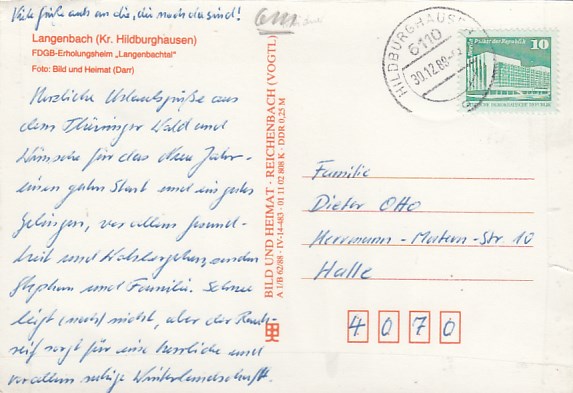 Viele Grüße auch an die, die noch da sind!
Langenbach (Kr. Hildburghausen)
FDGB-Erholungsheim „Langenbachtal"
Foto: Bild und Heimat (Darr)
Herzliche Urlaubsgrüße aus
dem Thüringer Wald und
Wünsche für das Neue Jahr -
einen guten Start und ein gutes
Gelingen, vor allem Gesund-
heit und Wohlergehen, senden
Stephan und Familie. Schnee
liegt (noch) nicht, aber der Rauh-
reif sorgt für eine herrliche und
vor allem ruhige Winterlandschaft.
BILD UND HEIMAT · REICHENBACH (VOGTL)
A 1/B 62/88 · IV-14-483 · 01 11 02 808 K · DDR 0,25 M
HILDBURGHAUSEN
6110
30.12.88
10
Palast der Republik
Familie
Dieter Otto
Herrmann-Matern-Str 10
Halle
4070